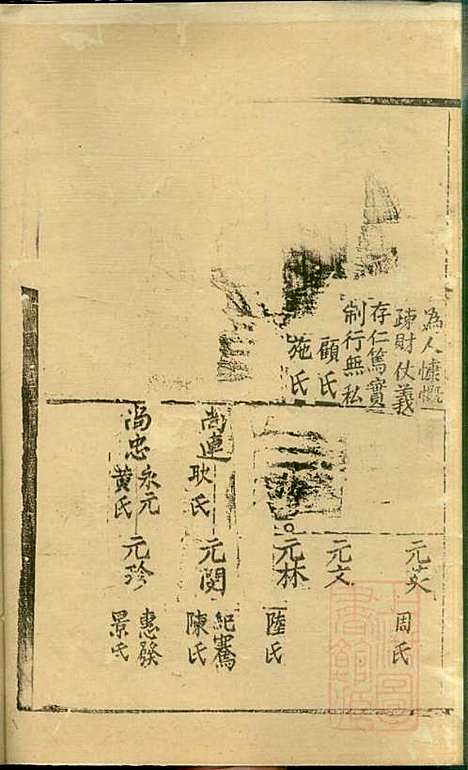 為人慷慨
疎財仗義
存仁篤實
制行無私
顧氏
施氏
元英
周氏
元文
元林
陸氏
尚連
耿氏
元閔
紀騫
陳氏
尚忠
永元
黄氏
元珍
惠發
景氏